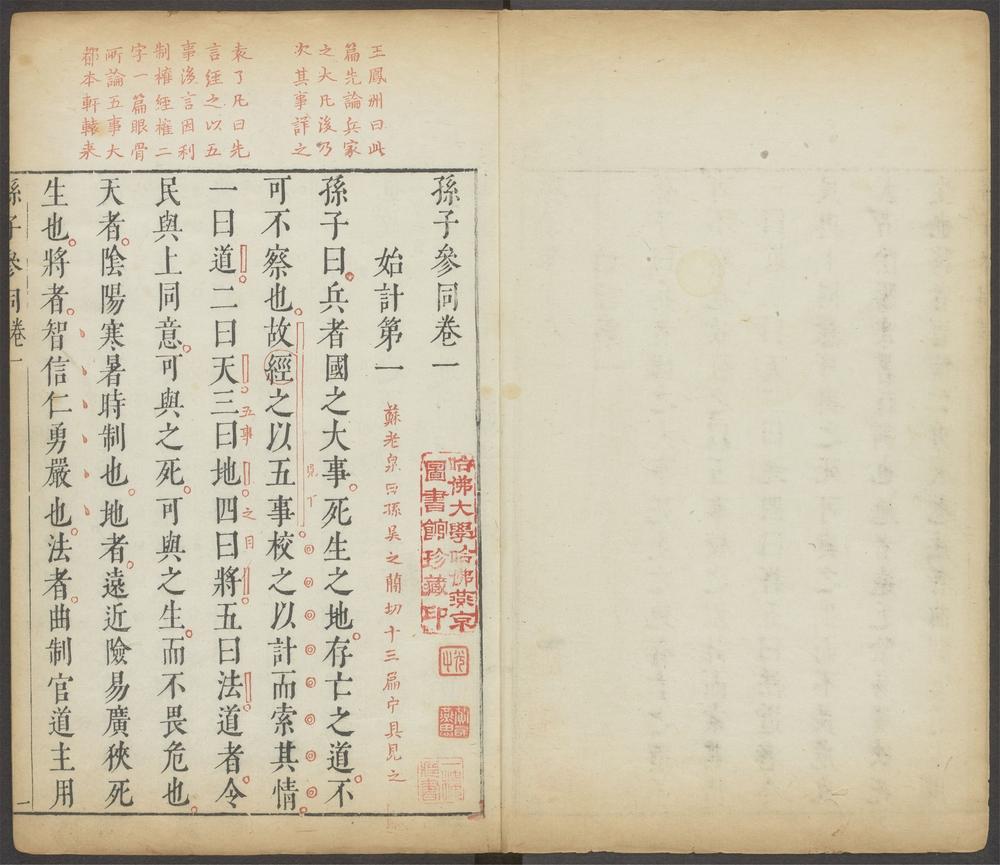 王鳳洲曰此
篇先論兵家
之大凡後乃
次其事詳之
袁了凡曰先
言經之以五
事後言因利
制權經權二
字一篇眼骨
所論五事大
都本軒轅來
孫子參同卷一
始計第一
蘇老泉曰孫吳之簡切十三篇中具見之
孫子曰兵者國之大事死生之地存亡之道不
可不察也故經之以五事校之以計而索其情
見下
一曰道二曰天三曰地四曰將五曰法道者令
五事之目
民與上同意可與之死可與之生而不畏危也
天者陰陽寒暑時制也地者遠近險易廣狹死
生也將者智信仁勇嚴也法者曲制官道主用
孫子參同卷一
一
哈佛大學哈佛燕京
圖書館珍藏印